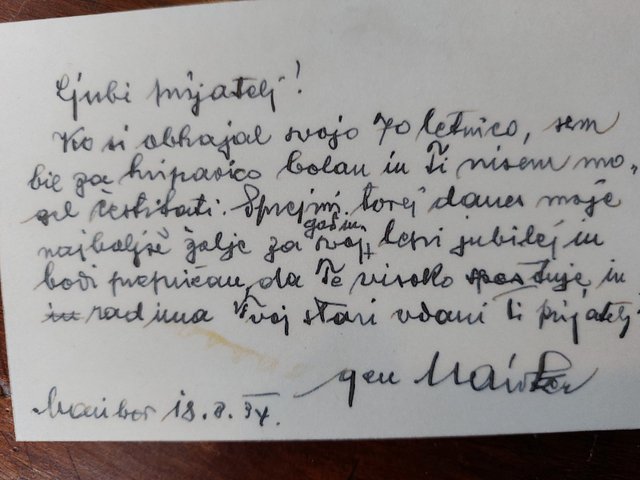 Ljubi prijatelj!
Ko si obhajal svojo 70 letnico, sem
bil za hripavico bolan in Ti nisem mo-
gel čestitati. Sprejmi torej danes moje
najboljše želje za Tvoj lepi jubilej in
bodi prepričan, da Te visoko spoštuje in
in rad ima Tvoj stari vdani ti prijatelj
gen Maister
Maribor 18.8.34.